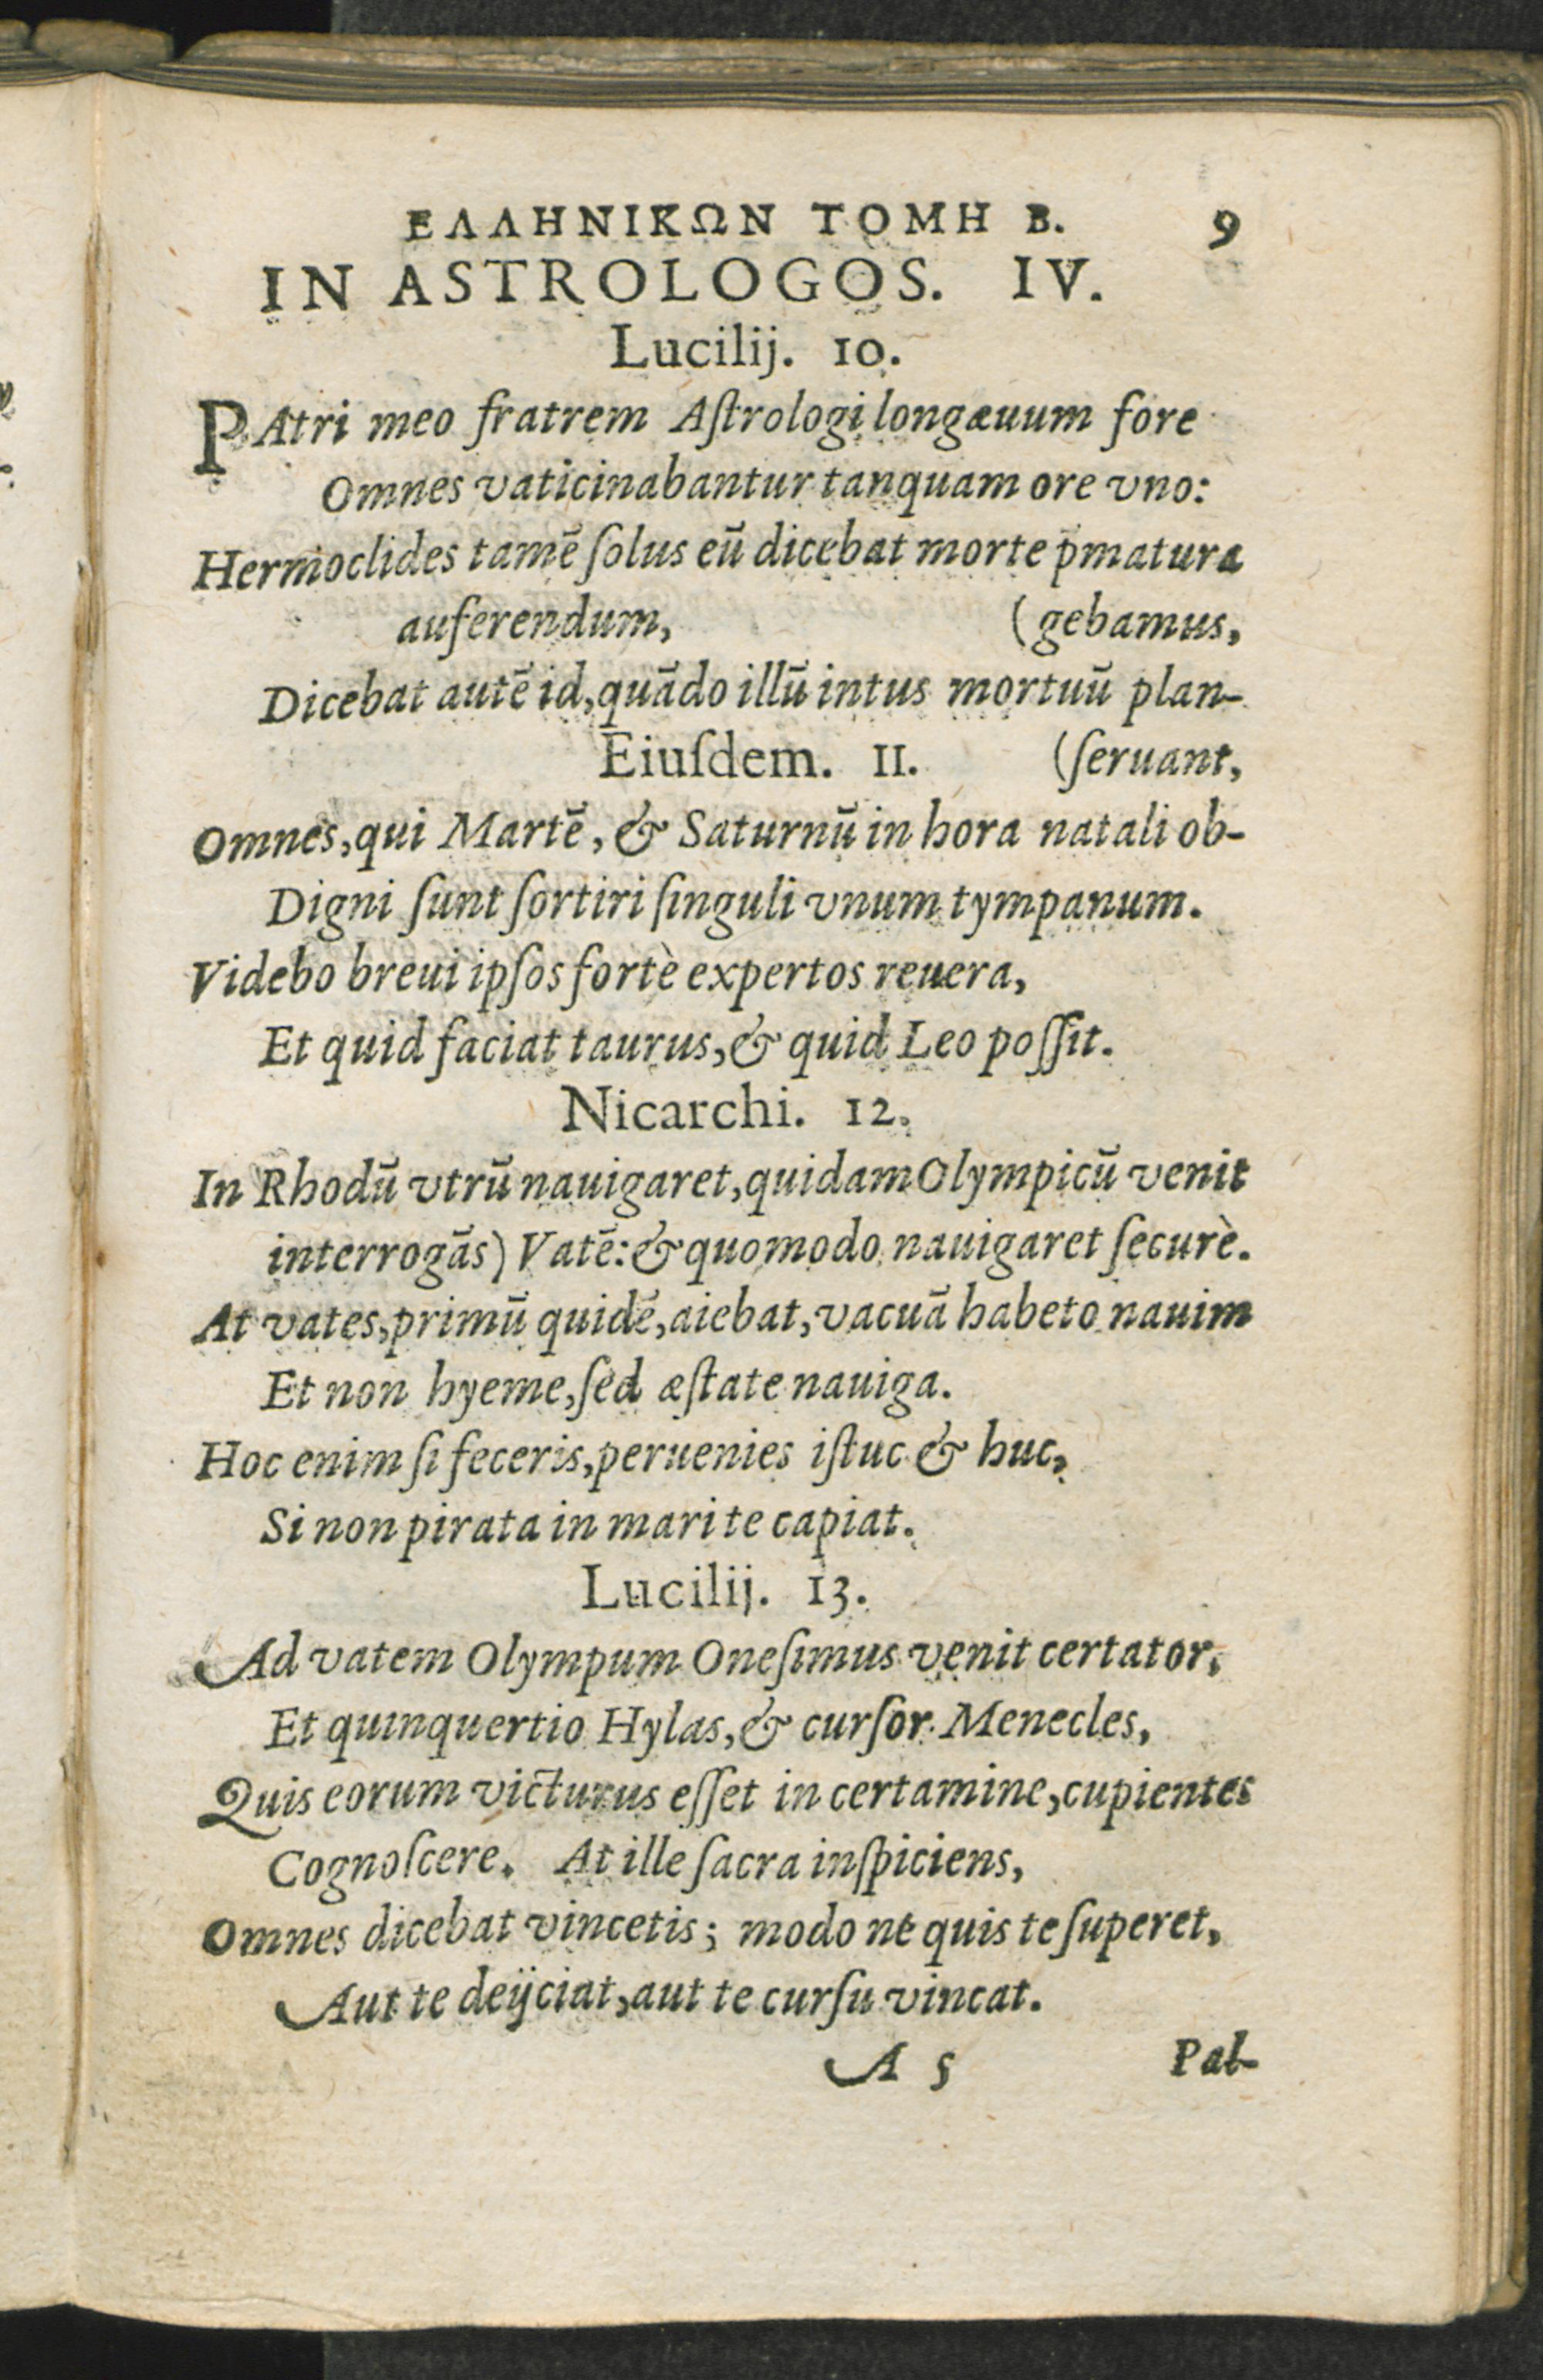 ΕΛΛΗΝΙΚΩΝ ΤΟΜΗ Β. 9
IN ASTROLOGOS. IV.
Lucilij. 10.
PAtri meo fratrem Aſtrologi longæuum fore
Omnes vaticinabantur tanquam ore vno:
Hermoclides tamē ſolus eū dicebat morte p̄matura
auferendum, (gebamus,
Dicebat autē id, quādo illū intus mortuū plan-
Eiuſdem. 11. (ſeruant,
Omnes, qui Martē, & Saturnū in hora natali ob-
Digni ſunt ſortiri ſinguli vnum tympanum.
Videbo breui ipſos fortè expertos reuera,
Et quid faciat taurus, & quid Leo poſſit.
Nicarchi. 12.
In Rhodū vtrū nauigaret, quidam Olympicū venit
interrogās) Vatē: & quomodo nauigaret ſecurè.
At vates, primū quidē, aiebat, vacuā habeto nauim
Et non hyeme, ſed æſtate nauiga.
Hoc enim ſi feceris, peruenies iſtuc & huc,
Si non pirata in mari te capiat.
Lucilij. 13.
Ad vatem Olympum Oneſimus venit certator,
Et quinquertio Hylas, & curſor Menecles,
Quis eorum victurus eſſet in certamine, cupientes
Cognoſcere. At ille ſacra inſpiciens,
Omnes dicebat vincetis; modo ne quis te ſuperet,
Aut te deijciat, aut te curſu vincat.
A 5 Pal-